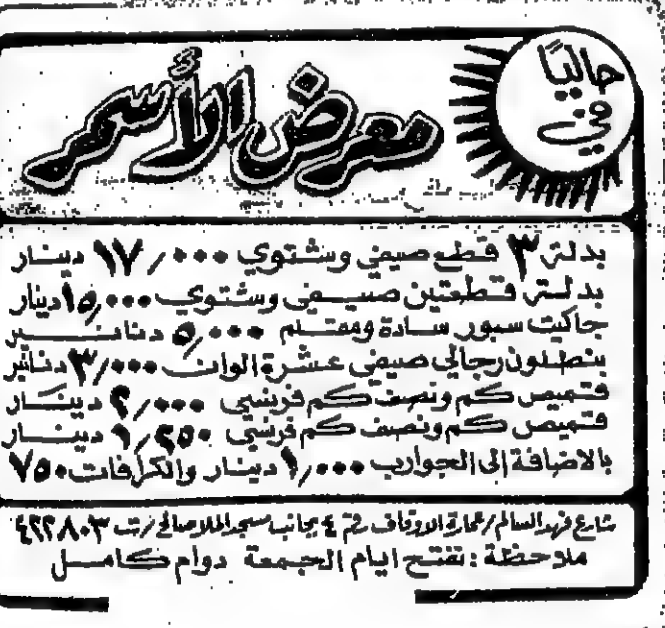 حاليًا
في
معرض الأسمر
بدلة ٣ قطع صيفي وشتوي ١٧/٠٠٠ دينار
بدلة قطعتين صيفي وشتوي ١٥/٠٠٠ دينار
جاكيت سبور سادة ومقلم ٥/٠٠٠ دنانير
بنطلون رجالي صيفي عشرة الوان ٣/٠٠٠ دنانير
قميص كم ونصف كم فرنسي ٢/٠٠٠ دينار
قميص كم ونصف كم فرنسي ١/٢٥٠ دينار
بالاضافة إلى الجوارب ١/٠٠٠ دينار والكرفات ٧٥٠
شارع فهد السالم / عمارة الاوقاف رقم ٤ بجانب مسجد الملا صالح / ت ٤٢٢٨٠٣
ملاحظة : نفتح ايام الجمعة دوام كامل